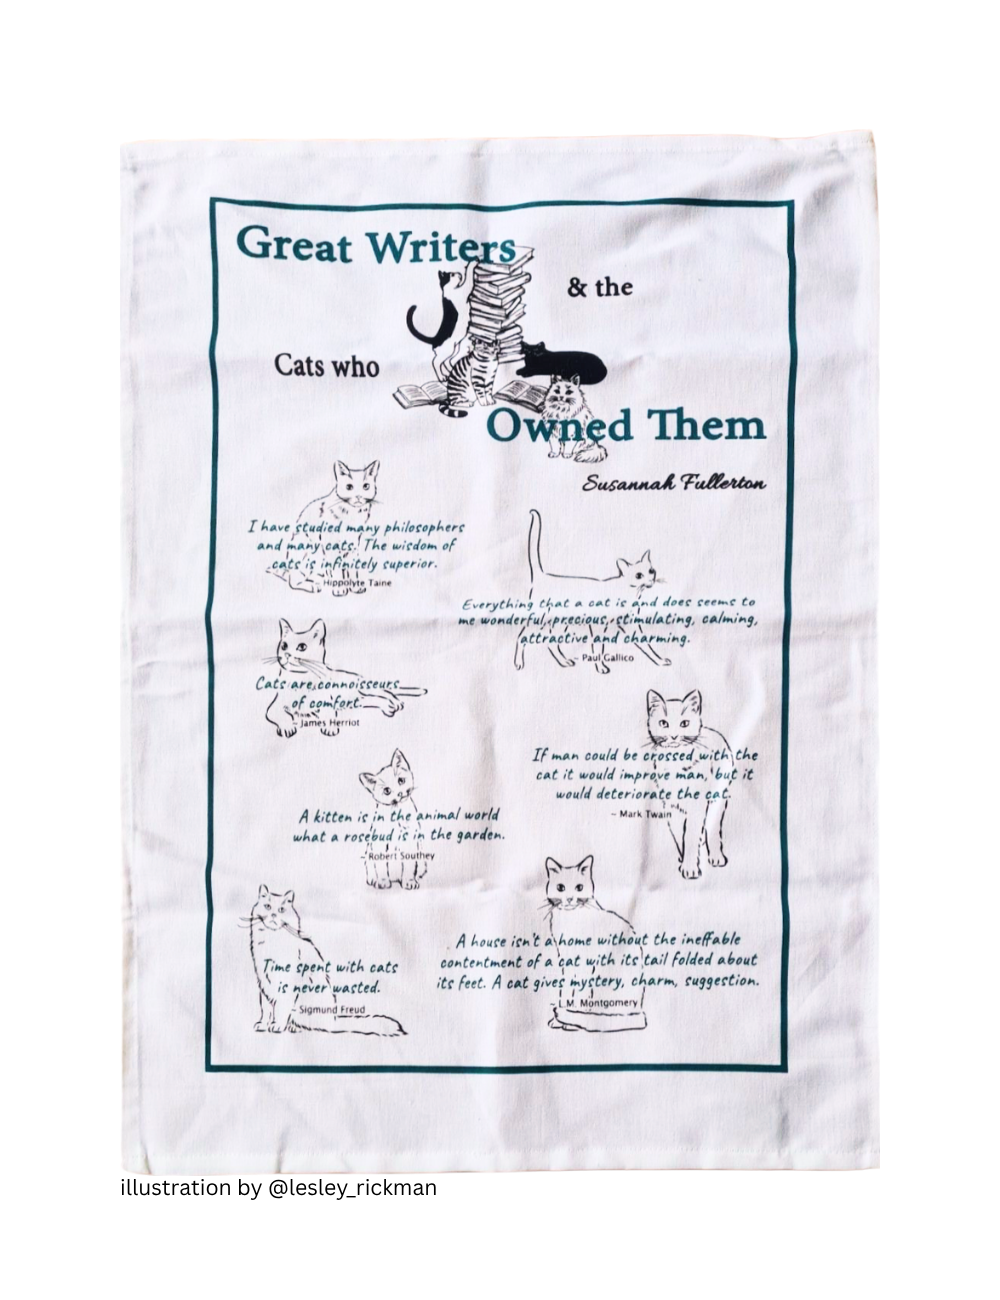 Great Writers
& the
Cats who
Owned Them
Susannah Fullerton
I have studied many philosophers
and many cats. The wisdom of
cats is infinitely superior.
~ Hippolyte Taine
Everything that a cat is and does seems to
me wonderful, precious, stimulating, calming,
attractive and charming.
~ Paul Gallico
Cats are connoisseurs
of comfort.
~ James Herriot
If man could be crossed with the
cat it would improve man, but it
would deteriorate the cat.
~ Mark Twain
A kitten is in the animal world
what a rosebud is in the garden.
~ Robert Southey
Time spent with cats
is never wasted.
~ Sigmund Freud
A house isn't a home without the ineffable
contentment of a cat with its tail folded about
its feet. A cat gives mystery, charm, suggestion.
~ L.M. Montgomery
illustration by @lesley_rickman